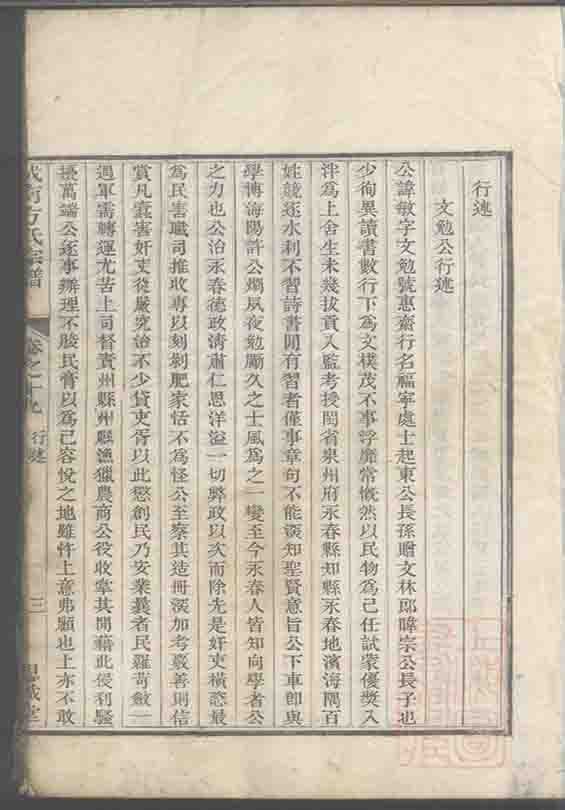 行述
文勉公行述
公諱敏字文勉號惠齋行名福寧處士起東公長孫贈文林郎暐宗公長子也
少徇異讀書數行下為文樸茂不事浮靡常慨然以民物為己任試蒙優獎入
泮為上舍生未幾拔貢入監考授閩省泉州府永春縣知縣永春地濱海隅百
姓競逐水利不習詩書間有習者僅事章句不能深知聖賢意旨公下車即與
學博海陽許公燗夙夜勉勵久之士風為之一變至今永春人皆知向學者公
之力也公治永春德政清肅仁恩洋溢一切弊政以次而除先是奸吏橫恣最
為民害職司推收專以刻剝肥家恬不為怪公至察其造冊深加考覈善則信
賞凡蠹害奸吏從嚴究治不少貸吏胥以此懲創民乃安業曩者民罹苛斂一
遇軍需轉運尤苦上司督責州縣州縣漁獵農商公役收宰其間藉此侵利騷
擾萬端公逐事辦理不朘民膏以為己容悅之地雖忤上意弗顧也上亦不敢
方氏宗譜 卷之二十九 行述 三 思誠堂